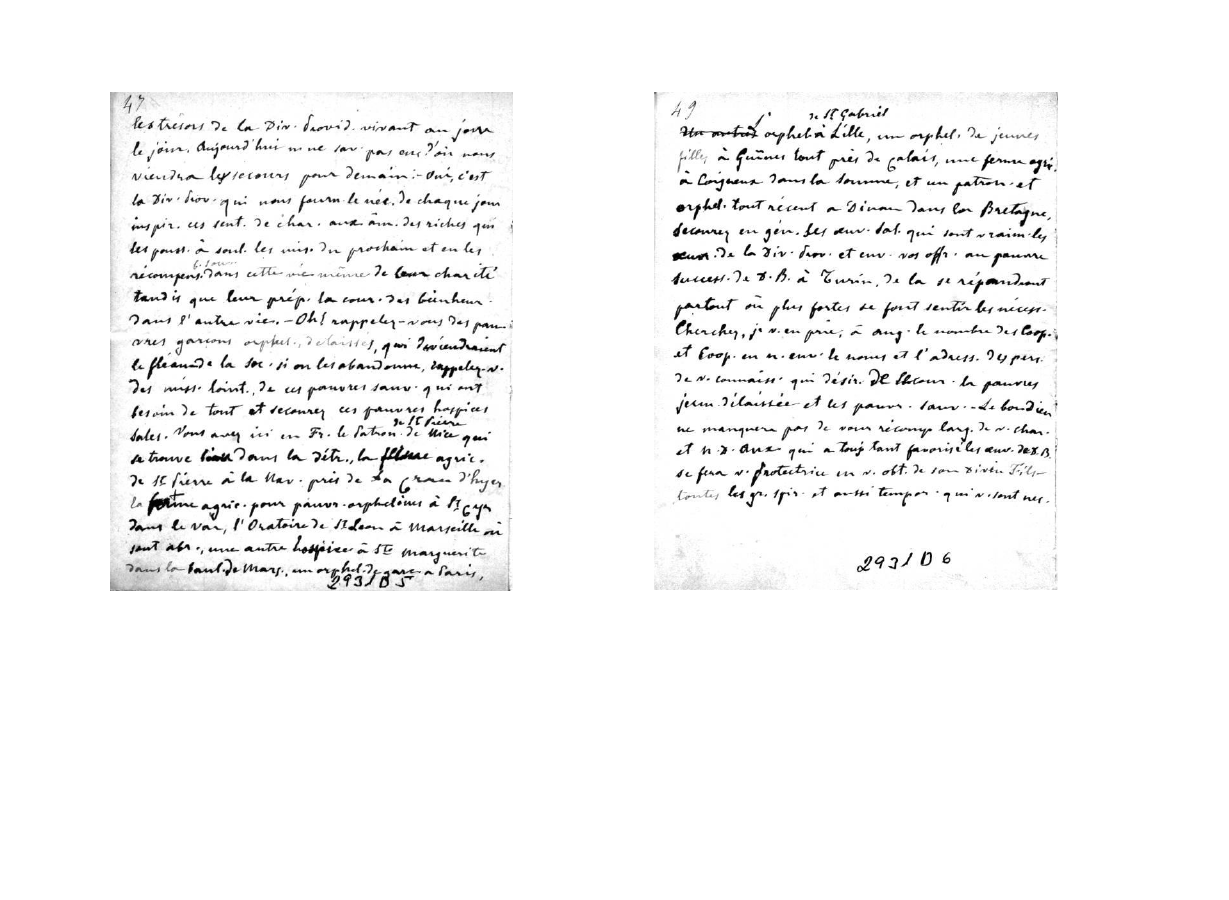 47
les trésors de la Div. Provid. vivant au jour
le jour. Aujourd'hui n. ne sav. pas enc. d'où nous
viendra les secours pour demain. - Oui, c'est
la Div. Prov. qui nous fourn. le néc. de chaque jour
inspir. ces sent. de char. aux âm. des riches qui
les pouss. à soul. les mis. du prochain et en les
récompens. dans cette vie même de leur charité
tandis que leur prép. la cour. des bienheur.
dans l'autre vie. - Oh! rappelez-vous des pau-
vres garçons orphel., délaissés, qui deviendraient
le fléau de la soc. si on les abandonne, rappelez-v.
des miss. loint., de ces pauvres sauv. qui ont
besoin de tout et secourez ces pauvres hospices
de St Pierre
Sales. Vous avez ici en Fr. le Patron. de Nice qui
se trouve dans la détr., la agric.
de St. Pierre à la Nav. près de La Crau d'Hyer
la ferme agric. pour pauv. orphelines à St Cyr
dans le Var, l'Oratoire de St Léon à Marseille où
sont abr., une autre hospice à Ste Marguerite
dans la banl. de Mars., un orphel. de garç. a Paris,
2931 B 5
49
de St Gabriel
Un autre orphel. à Lille, un orphel. de jeunes
filles à Guînes tout près de Calais, une ferme agri.
à Coigneux dans la Somme, et un patron. et
orphel. tout récent a Dinan dans la Bretagne,
Secourez en gén. les œuv. Sal. qui sont vraim. les
œuv. de la Div. Prov. et env. vos offr. au pauvre
success. de D. B. à Turin, de la se répandront
partout où plus fortes se font sentir les nécess.
Cherchez, je v. en prie, à aug. le nombre des Coop.
et Coop. en n. env. le noms et l'adress. des pers.
de v. connaiss. qui désir. de secour. la pauvres
jeun. délaissée et les pauvr. sauv. - Le bon Dieu
ne manquera pas de vous récomp. larg. de v. char.
et N. D. Aux. qui a touj. tant favorisé les œuv. de D. B.
se fera v. Protectrice en v. obt. de son Divin Fils
toutes les gr. spir. et aussi tempor. qui v. sont nec.
2931 B 6